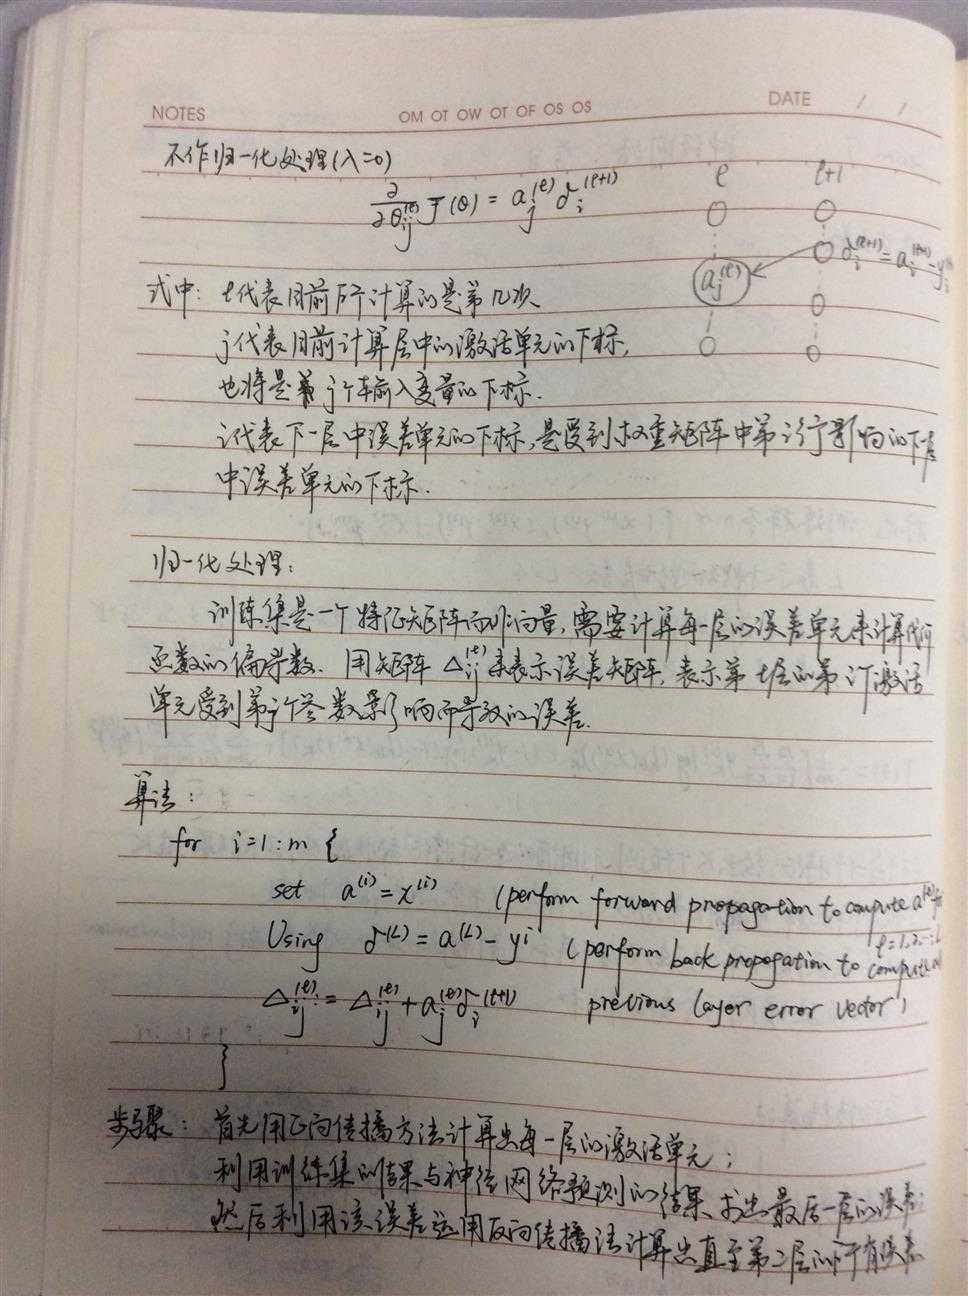 NOTES OM OT OW OT OF OS OS DATE / /
不作归一化处理(λ=0)
∂/∂θ_ij^(l) J(θ) = a_j^(l) δ_i^(l+1)
l l+1
a_j^(l) δ_i^(l+1) = a_i^(l+1) - y_i
式中: l代表目前所计算的是第几次
j代表目前计算层中的激活单元的下标,
也将是第j个输入变量的下标.
i代表下一层中误差单元的下标,是受到权重矩阵中第i行影响的下一层
中误差单元的下标.
归一化处理:
训练集是一个特征矩阵而非向量,需要计算每一层的误差单元来计算代价
函数的偏导数. 用矩阵 Δ_ij^(l) 来表示误差矩阵, 表示第 l层的第 i个激活
单元受到第j个参数影响而导致的误差.
算法:
for i=1:m {
set a^(i) = x^(i) (perform forward propagation to compute a^(l) for
l=1,2,…L
Using δ^(L) = a^(L) - yi (perform back propagation to compute all
Δ_ij^(l) = Δ_ij^(l) + a_j^(l) δ_i^(l+1) previous layer error vector)
}
步骤: 首先用正向传播方法计算出每一层的激活单元;
利用训练集的结果与神经网络预测的结果求出最后一层的误差;
然后利用该误差运用反向传播法计算出直至第二层的所有误差